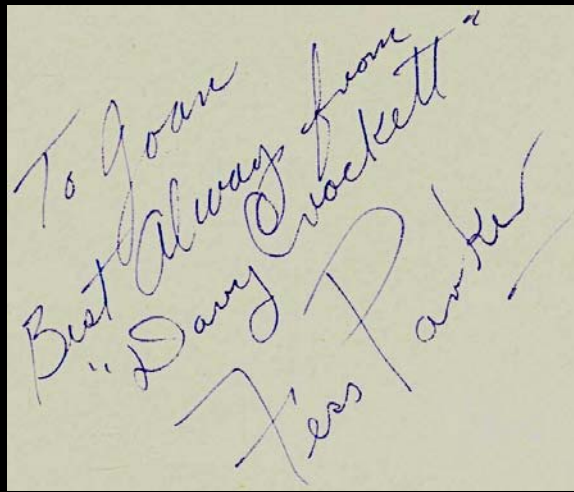 To Joan
Best Always from
"Davy Crockett"
Fess Parker